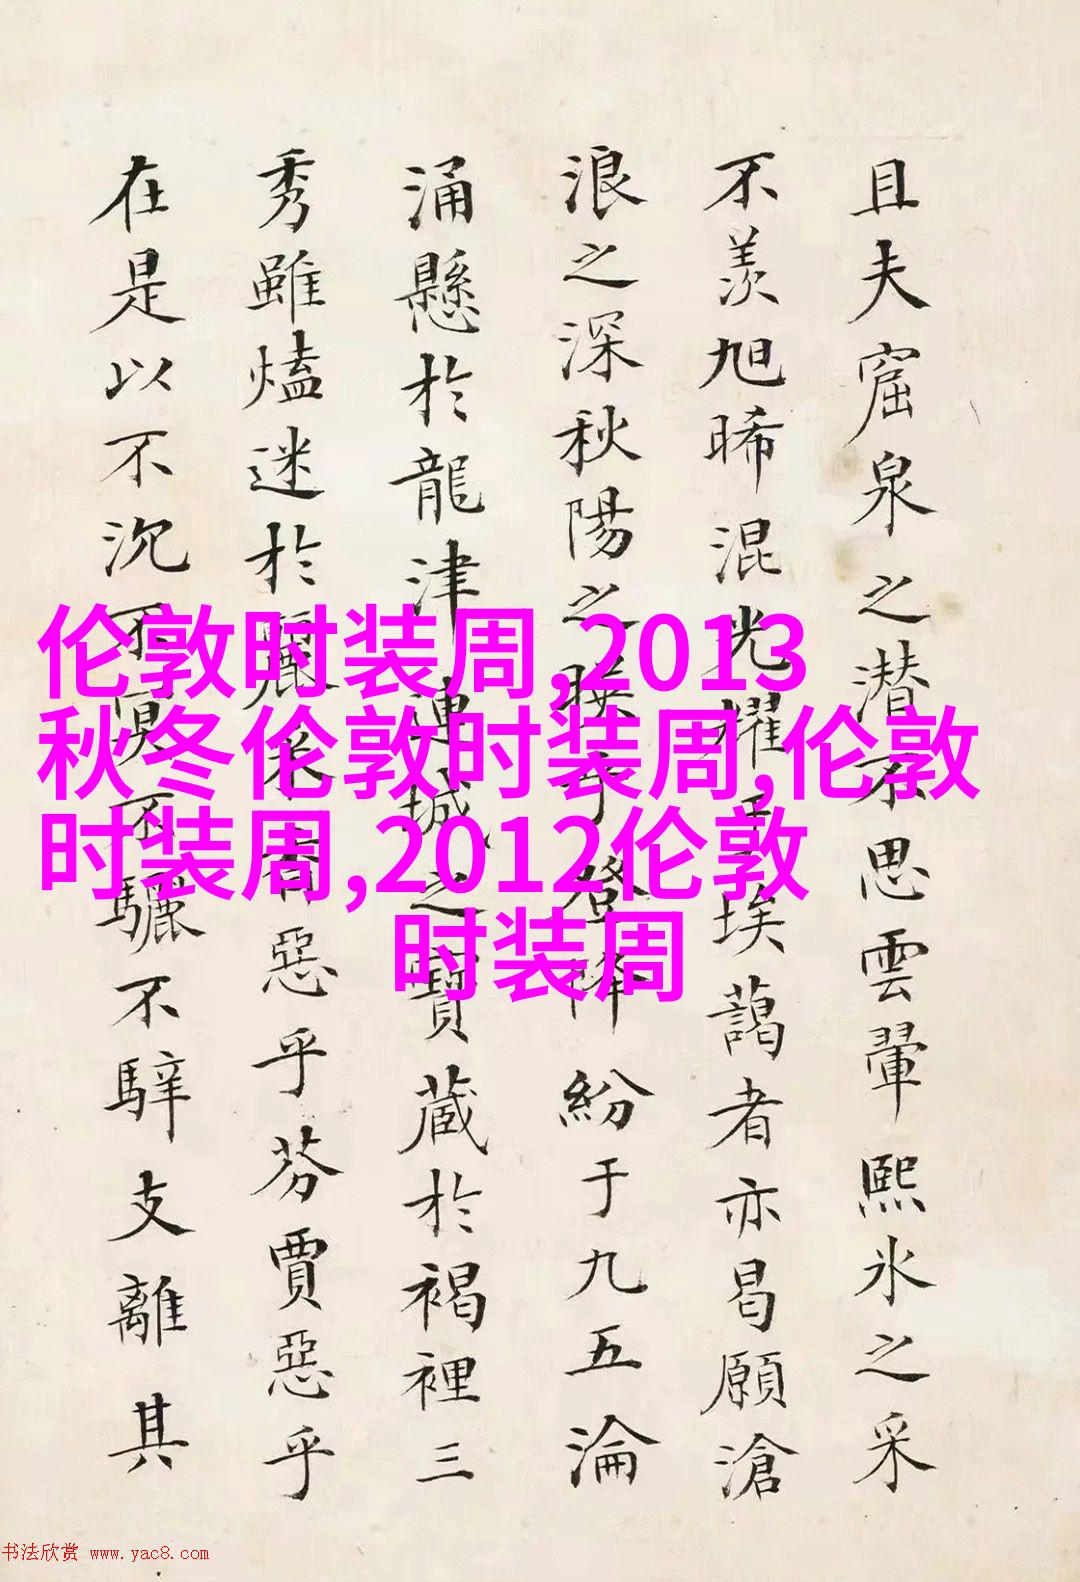 且夫窟泉之潜不思雲翬熙氷之采
不羨旭晞混光耀于埃藹者亦曷願滄
浪之深秋陽之暎乎登降紛于九五淪
涌懸於龍津連城之寶蔵於褐裡三
秀雖爐迷於麗采香惡乎芬賈惡乎
在是以不沉不冥不驪不騂支離其
伦敦时装周,2013
秋冬伦敦时装周,伦敦
时装周,2012伦敦
时装周
书法欣赏 www.yac8.com